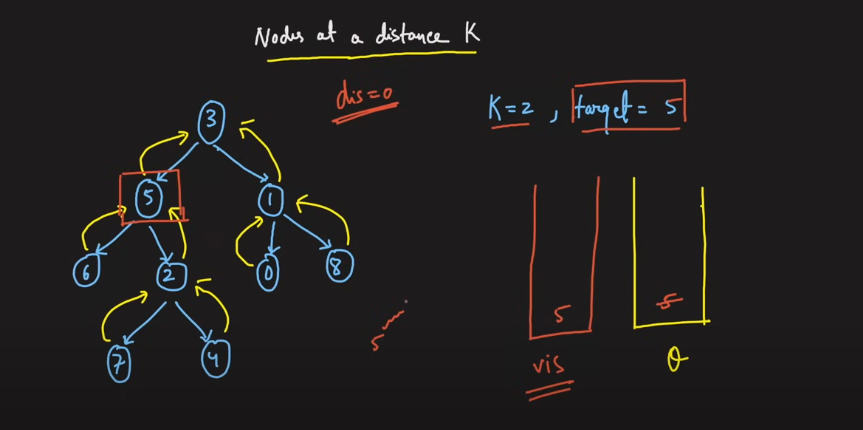 Nodes at a distance K
dis=0
K=2 , target= 5
3
5
1
6
2
0
8
7
4
5
5
5
vis
Q